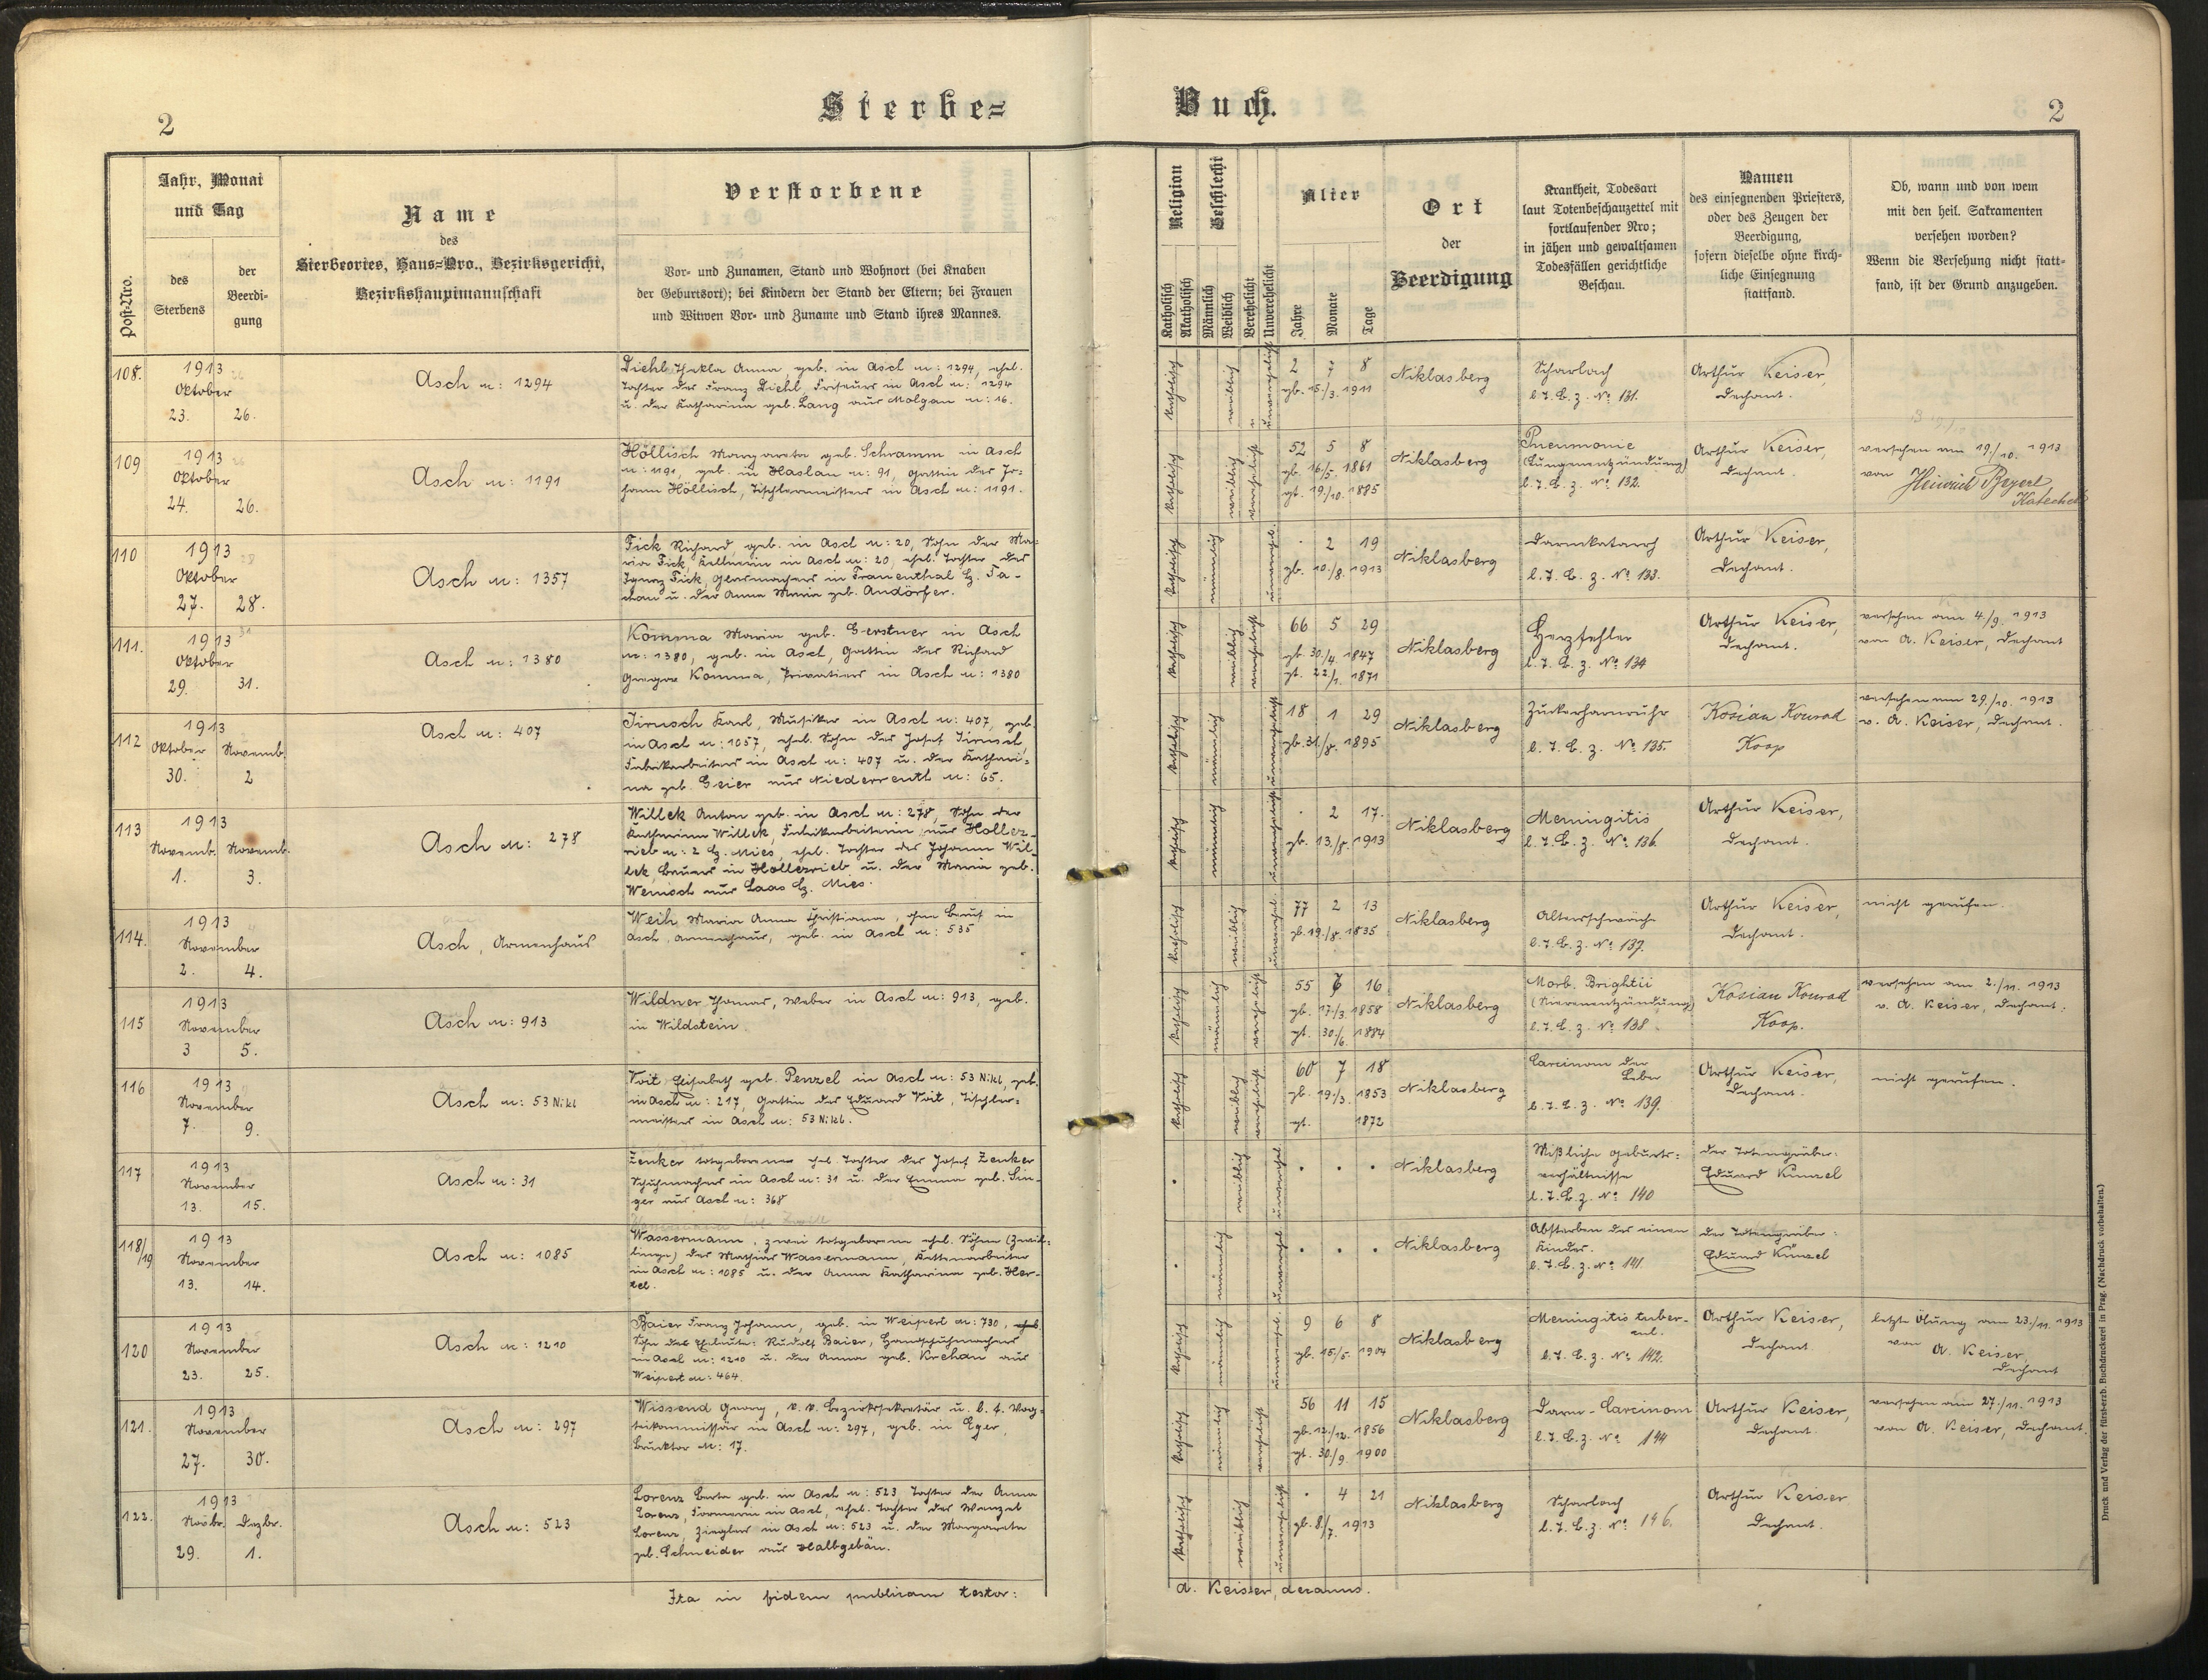 2
Sterbe=
Buch.
2
Post-Nro.
Jahr, Monat
und Tag
des
Sterbens
der
Beerdi-
gung
Name
des
Sterbeortes, Haus=Nro., Bezirksgericht,
Bezirkshauptmannschaft
Verstorbene
Vor- und Zunamen, Stand und Wohnort (bei Knaben
der Geburtsort); bei Kindern der Stand der Eltern; bei Frauen
und Witwen Vor- und Zuname und Stand ihres Mannes.
Religion
Katholisch
Akatholisch
Geschlecht
Männlich
Weiblich
Verehelicht
Unverehelicht
Alter
Jahre
Monate
Tage
Ort
der
Beerdigung
Krankheit, Todesart
laut Totenbeschauzettel mit
fortlaufender Nro;
in jähen und gewaltsamen
Todesfällen gerichtliche
Beschau.
Namen
des einsegnenden Priesters,
oder des Zeugen der
Beerdigung,
sofern dieselbe ohne kirch-
liche Einsegnung
stattfand.
Ob, wann und von wem
mit den heil. Sakramenten
versehen worden?
Wenn die Versehung nicht statt-
fand, ist der Grund anzugeben.
108.
1913
Oktober
23. 26.
Asch n: 1294
Diehl Thekla Anna, geb. in Asch n: 1294, ehel.
Tochter des Franz Diehl, Friseurs in Asch n: 1294
u. der Katharina geb. Lang aus Molgau n: 16.
katholisch
weiblich
unverehelicht
2 7 8
gb. 15./3. 1911
Niklasberg
Scharlach
l. T. B. z. No 131.
Arthur Keiser,
Dechant.
109
1913
Oktober
24. 26.
Asch n: 1191
Höllisch Margareta geb. Schramm in Asch
n: 1191, geb. in Haslau n: 91, Gattin des Jo=
hann Höllisch, Tischlermeisters in Asch n: 1191.
katholisch
weiblich
verehelicht
52 5 8
gb. 16./5. 1861
gt. 19./10. 1885
Niklasberg
Pneumonie
(Lungenentzündung)
l. T. B. z. No 132.
Arthur Keiser,
Dechant.
versehen am 19./10. 1913
von Heinrich
Katechet
110
1913
Oktober
27. 28.
Asch n: 1357
Fick Richard, geb. in Asch n: 20, Sohn der Ma=
ria Fick, Kellnerin in Asch n: 20, ehel. Tochter des
Ignaz Fick, Glasmachers in Frauenthal Bz. Ta-
chau u. der Anna Maria geb. Andörfer.
katholisch
männlich
unverehel.
. 2 19
gb. 10./8. 1913
Niklasberg
Darmkatarrh
l. T. B. z. No 133.
Arthur Keiser,
Dechant.
111.
1913
Oktober
29. 31.
Asch n: 1380
Komma Maria geb. Gerstner in Asch
n: 1380, geb. in Asch, Gattin des Richard
Gregor Komma, Privatiers in Asch n: 1380
katholisch
weiblich
verehelicht
66 5 29
gb. 30./4. 1847
gt. 22./1. 1871
Niklasberg
Herzfehler
l. T. B. z. No 134
Arthur Keiser,
Dechant.
versehen am 4./9. 1913
von A. Keiser, Dechant
112
1913
Oktober Novemb.
30. 2
Asch n: 407
Jirusch Karl, Musiker in Asch n: 407, geb.
in Asch n: 1057, ehel. Sohn des Josef Jirusch,
Fabrikarbeiters in Asch n: 407 u. der Kathari=
na geb. Geier aus Niederreuth n: 65.
katholisch
männlich
unverehelicht
18 1 29
gb. 31./8. 1895
Niklasberg
Zuckerharnruhr
l. T. B. z. No 135.
Kosian Konrad
Koop
versehen am 29./10. 1913
v. A. Keiser, Dechant.
113
1913
Novemb. Novemb.
1. 3.
Asch n: 278
Willek Anton geb. in Asch n: 278, Sohn der
Katharina Willek, Fabrikarbeiterin aus Holle-
rieb n: 2 Bz. Mies, ehel. Tochter des Johann Wil-
lek, Bauers in Hollezrieb u. der Maria geb.
Wenisch aus Laas Bz. Mies.
katholisch
männlich
unverehelicht
. 2 17.
gb. 13./8. 1913
Niklasberg
Meningitis
l. T. B. z. No 136.
Arthur Keiser,
Dechant.
114.
1913
November
2. 4.
Asch, Armenhaus
Weih Maria Anna Christiana, ohne Beruf in
Asch, Armenhaus, geb. in Asch n: 535
katholisch
weiblich
unverehel.
77 2 13
gb. 19./8. 1835
Niklasberg
Altersschwäche
l. T. B. z. No 137.
Arthur Keiser,
Dechant.
nicht gerufen.
115
1913
November
3 5.
Asch n: 913
Wildner Thomas, Weber in Asch n: 913, geb.
in Wildstein.
katholisch
männlich
verehelicht
55 16
gb. 17./3. 1858
gt. 30./6. 1884
Niklasberg
Morb. Brightii
(Nierenentzündung)
l. T. B. z. No 138
Kosian Konrad
Koop.
versehen am 2./11. 1913
v. A. Keiser, Dechant.
116
1913
November
7. 9.
Asch n: 53 Nikl
Voit Elisabeth geb. Penzel in Asch n: 53 Nikl, geb.
in Asch n: 217, Gattin des Eduard Voit, Tischler=
meisters in Asch n: 53 Nikl.
katholisch
weiblich
verehelicht
60 7 18
gb. 19./3. 1853
gt. 1872
Niklasberg
Carcinom der
Leber
l. T. B. z. No 139.
Arthur Keiser,
Dechant.
nicht gerufen.
117
1913
November
13. 15.
Asch n: 31
Zenker totgeborene ehel. Tochter des Josef Zenker
Schuhmachers in Asch n: 31 u. der Emma geb. Sin-
ger aus Asch n: 368
weiblich
unverehel.
. . .
Niklasberg
Mißliche Geburts=
verhältnisse
l. T. B. z. No 140
der Totengräber:
Eduard Künzel
118/19
1913
November
13. 14.
Asch n: 1085
Wassermann, zwei totgeborene ehel. Söhne (Zwil=
linge) des Mathias Wassermann, Kettenarbeiter
in Asch n: 1085 u. der Anna Katharina geb. Her-
tel.
männlich
unverehel.
. . .
Niklasberg
Absterben des einen
Kindes.
l. T. B. z. No 141.
der Totengräber:
Eduard Künzel
120
1913
November
23. 25.
Asch n: 1210
Baier Franz Johann, geb. in Weipert n: 730, ehel.
Sohn der Eheleute: Rudolf Baier, Handschuhmachers
in Asch n: 1210 u. der Anna geb. Krehan aus
Weipert n: 464.
katholisch
männlich
unverehel.
9 6 8
gb. 15./5. 1904
Niklasberg
Meningitis tuber-
cul.
l. T. B. z. No 142.
Arthur Keiser,
Dechant
letzte Ölung am 23./11. 1913
von
A. Keiser,
Dechant
121.
1913
November
27. 30.
Asch n: 297
Wissend Georg, k. k. Bezirkssekretär u. l. f.
in Asch n: 297, geb. in Eger,
Brucktor n: 17.
katholisch
männlich
verehelicht
56 11 15
gb. 12./12. 1856
gt. 30./9. 1900
Niklasberg
Darm-Carcinom
l. T. B. z. No 144
Arthur Keiser,
Dechant.
versehen am 27./11. 1913
von A. Keiser, Dechant.
122.
1913
Novbr. Dezbr.
29. 1.
Asch n: 523
Lorenz Berta geb. in Asch n: 523 Tochter der Anna
Lorenz, in Asch, ehel. Tochter des Wenzel
Lorenz, Zieglers in Asch n: 523 u. der Margareta
geb. Schneider aus Halbgebäu.
katholisch
weiblich
unverehelicht
. 4 21
gb. 8./7. 1913
Niklasberg
Scharlach
l. T. B. z. No 146.
Arthur Keiser
Dechant.
Ita in fidem publicam testor:
A. Keiser, decanus.
Druck und Verlag der fürst-erzb. Buchdruckerei in Prag. (Nachdruck vorbehalten.)